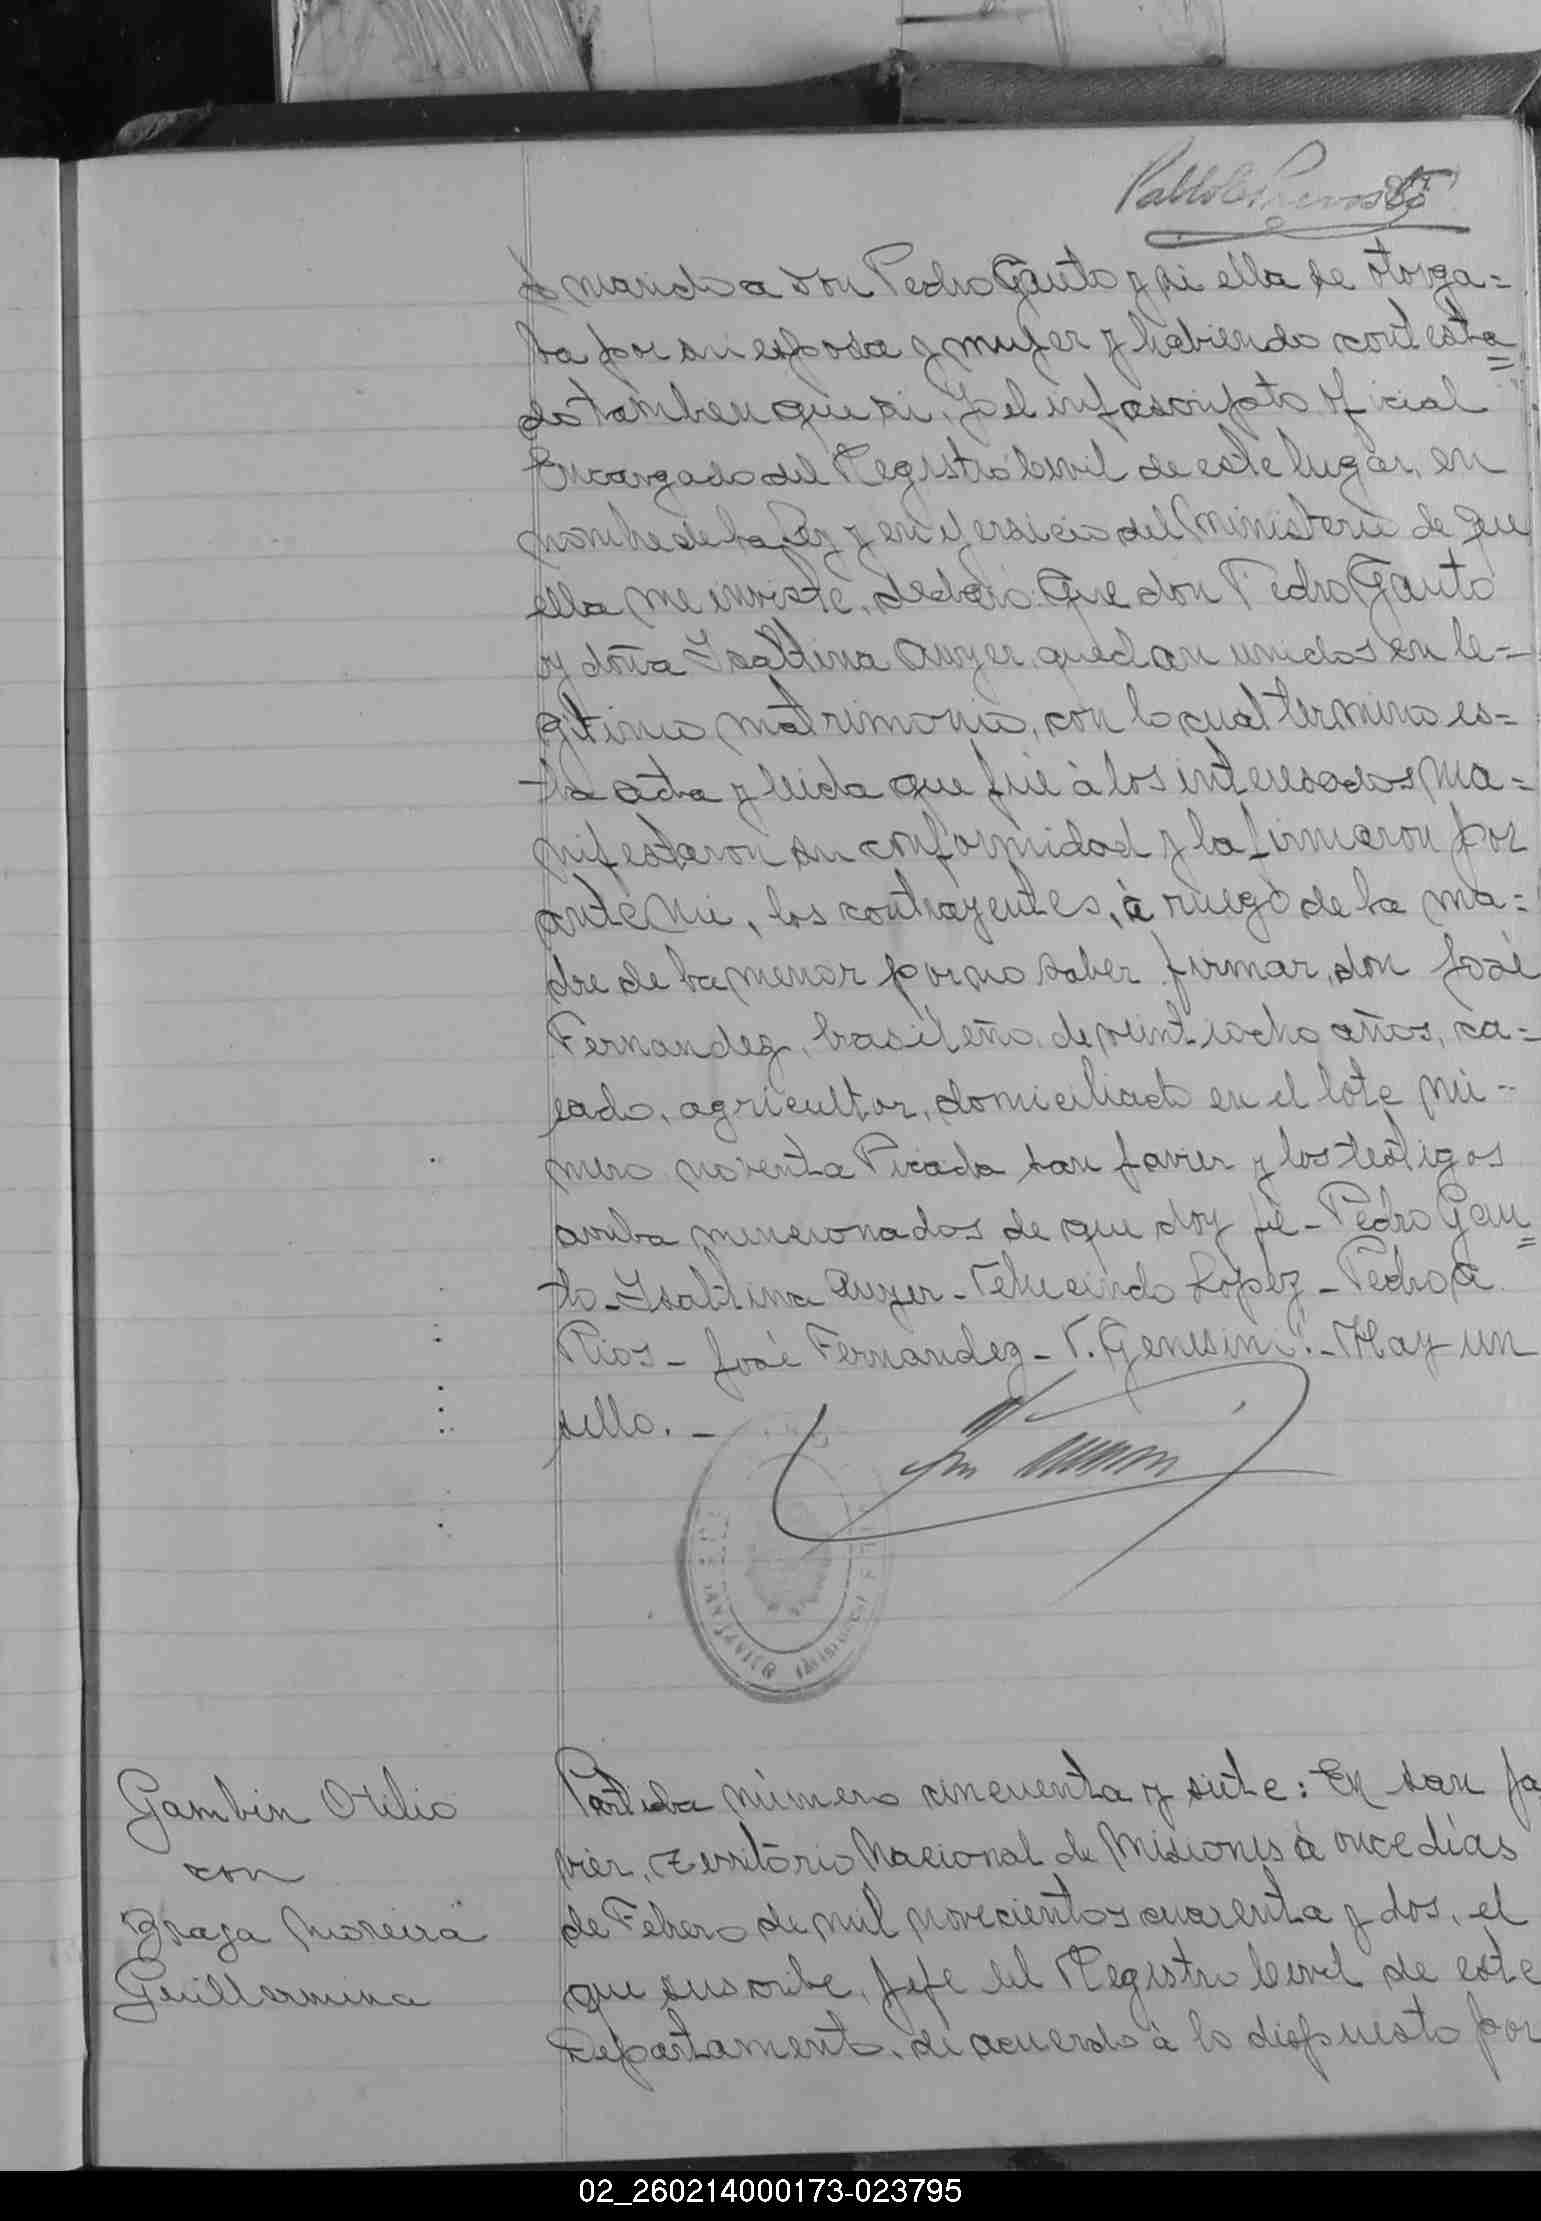 y marido a don Pedro Gauto y si ella se otorga=
ba por su esposa y mujer y habiendo contesta=
do tambien que si, Yo el infascripto Oficial
Encargado del Registro Civil de este lugar, en
nombre de la Ley y en ejersicio del Ministerio de que
ella me inviste, declaro: Que don Pedro Gauto
y doña Isaltina Auyer quedan unidos en le=
gitimo matrimonio, con lo cual termino es=
ta acta y leida que fué à los interesados ma=
nifestaron su conformidad y la firmaron por
ante mi, los contrayentes, à ruego de la ma=
dre de la menor por no saber firmar, don José
Fernandez, brasileño, de veintiocho años, ca=
sado, agricultor, domiciliado en el lote nú=
mero noventa Picada san Javier y los testigos
arriba mencionados de que doy fé - Pedro Gau=
to - Isaltina Auyer - Lopez - Pedro A.
Rios - José Fernandez - V. Genesini. - Hay un
sello. -
SAN JAVIER MISIONES
Gambin Otilio
con
Braga Moreira
Guillermina
Partida número cincuenta y siete: En san Ja
vier, Territorio Nacional de Misiones à once días
de Febrero de mil novecientos cuarenta y dos, el
que suscribe, Jefe del Registro Civil de este
Departamento, de acuerdo à lo dispuesto por
02_260214000173-023795